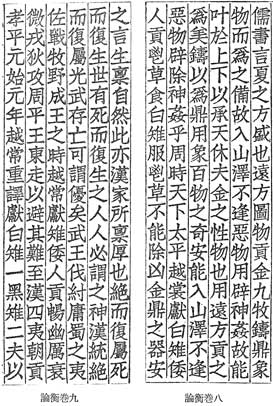 儒書言夏之方盛也遠方圖物貢金九牧鑄鼎象
物而爲之備故入山澤不逢惡物用辟神姦故能
叶於上下以承天休夫金之性物也用遠方貢之
爲美鑄以爲鼎用象百物之奇安能入山澤不逢
惡物辟除神姦乎周時天下太平越裳獻白雉倭
人貢鬯草食白雉服鬯草不能除凶金鼎之器安
論衡巻八
之言生稟自然此亦漢家所稟厚也絶而復屬死
而復生世有死而復生之人人必謂之神漢統絶
而復屬光武存亡可謂優矣武王伐紂庸蜀之夷
佐戰牧野成王之時越常獻雉倭人貢暢幽厲衰
微戎狄攻周平王東走以避其難至漢四夷朝貢
孝平元始元年越常重譯獻白雉一黑雉二夫以
論衡巻九